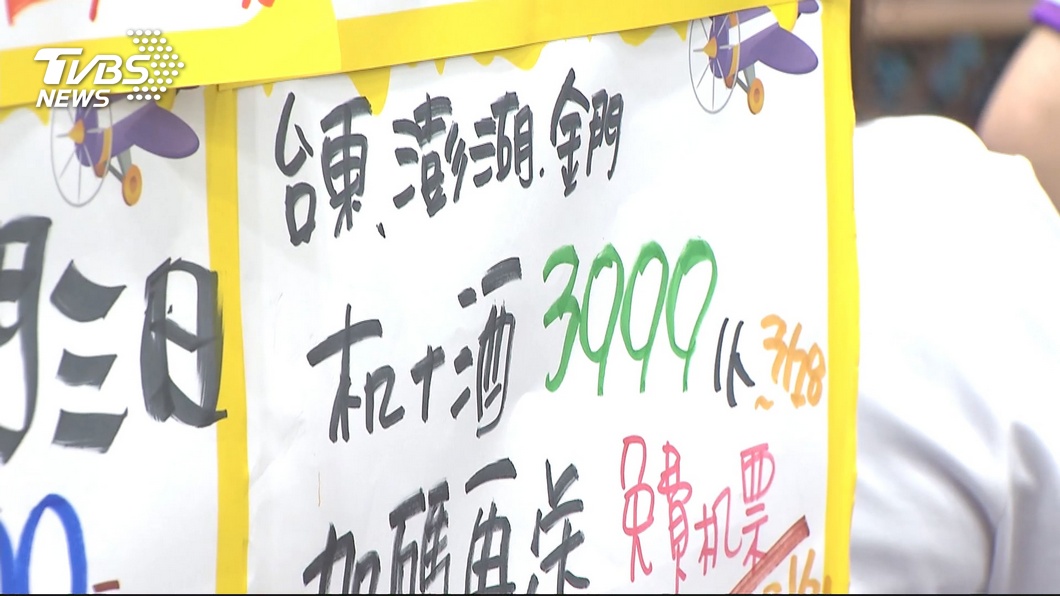 TVBS
NEWS
台東、澎湖.金門
机+酒 3000 ~3/18
加碼再送 免費机票
三日